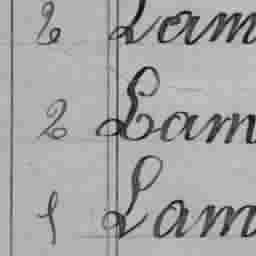 2 Lam
2 Lam
1 Lam